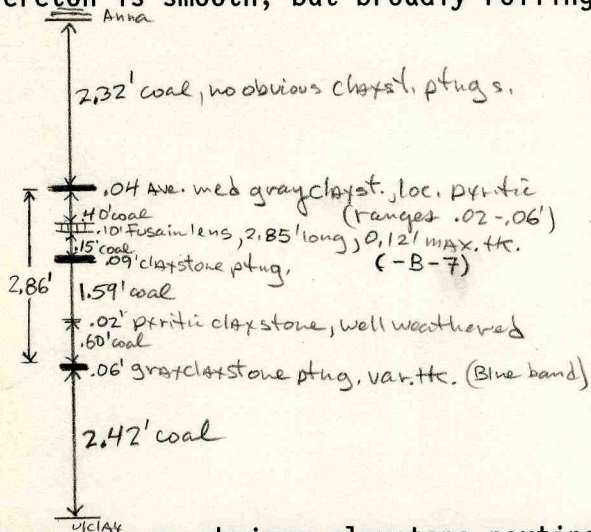 ereton is smooth, but broadly rolling
Anna
2.32' coal, no obvious clayst. ptngs.
.04 Ave. med gray clayst., loc. pyritic
(ranges .02-.06')
.40' coal
.10' Fusain lens, 2.85' long, 0.12' max. tk.
.15' coal
.09' claystone ptng. (-B-7)
2.86'
1.59' coal
.02' pyritic claystone, well weathered
.60' coal
.06' gray claystone ptng. var. tk. (Blue band)
2.42' coal